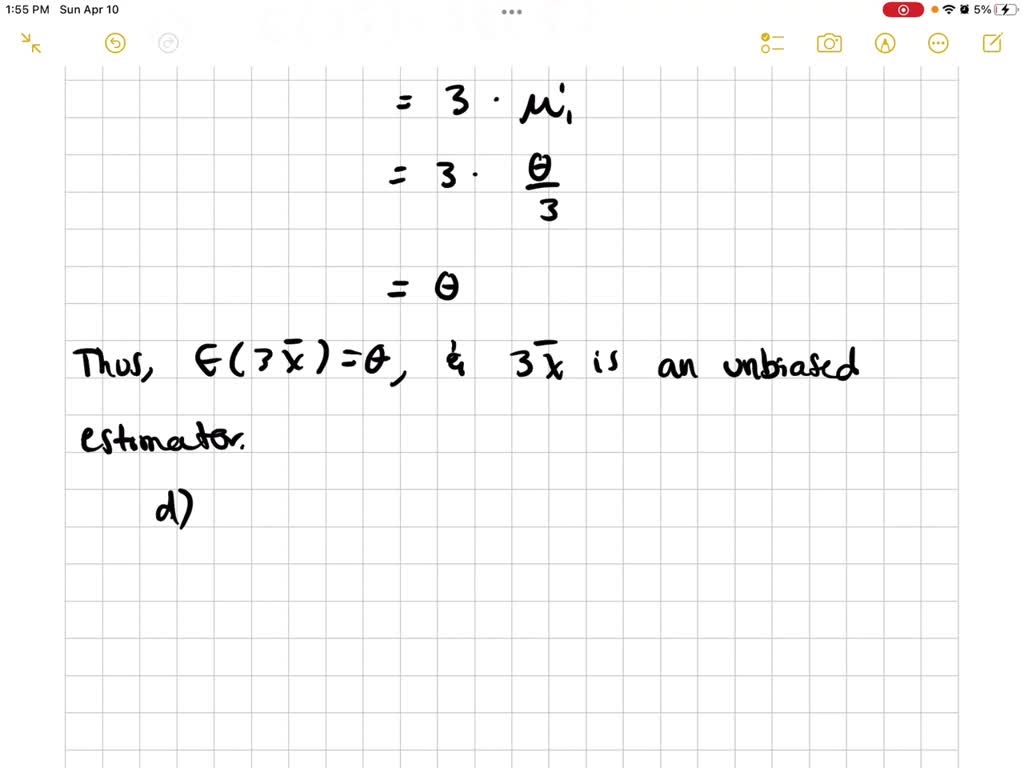 1:55 PM Sun Apr 10
5%
= 3 · μ'₁
= 3 · θ/3
= θ
Thus, E(3x̄) = θ, & 3x̄ is an unbiased
estimator.
d)